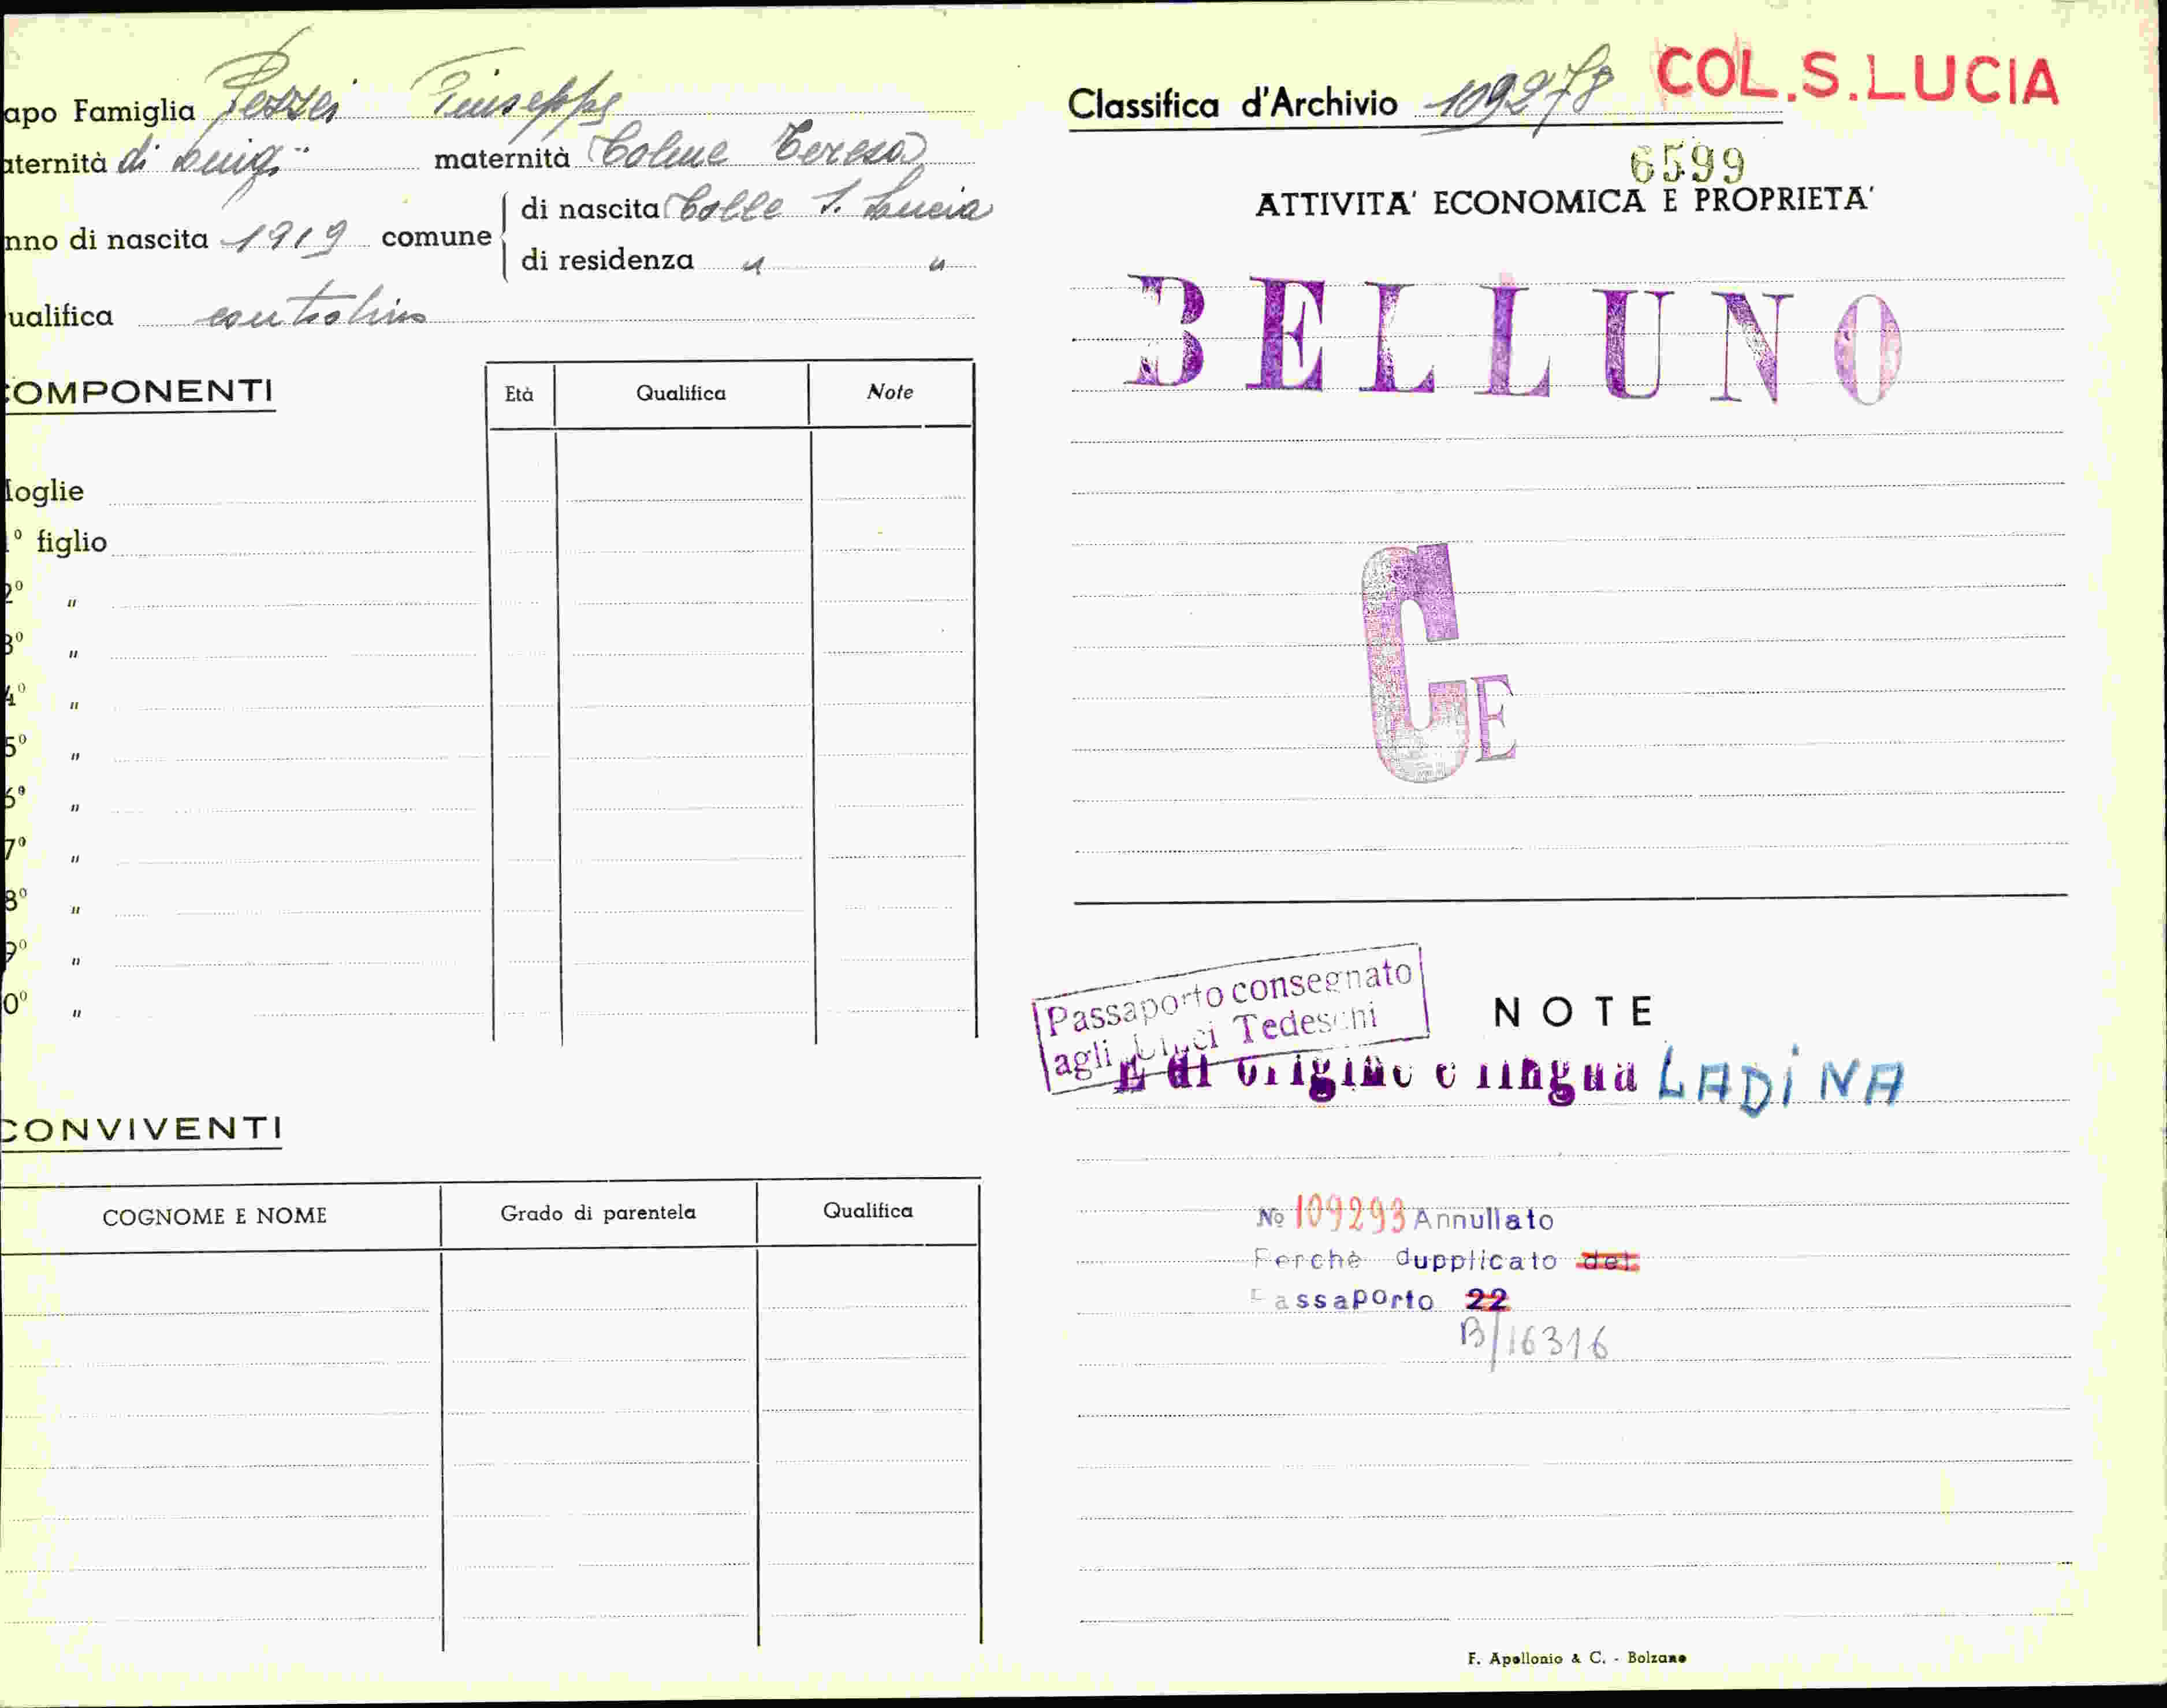 apo Famiglia Pezzei Giuseppe
aternità di Luigi maternità Colcuc Teresa
nno di nascita 1919 comune
di nascita Colle S. Lucia
di residenza " "
ualifica contadino
COMPONENTI
Età Qualifica Note
loglie
1° figlio
2° "
3° "
4° "
5° "
6° "
7° "
8° "
9° "
0° "
CONVIVENTI
COGNOME E NOME Grado di parentela Qualifica
Classifica d'Archivio 109278 COL.S.LUCIA
6599
ATTIVITA' ECONOMICA E PROPRIETA'
BELLUNO
CE
Passaporto consegnato
agli Uffici Tedeschi
NOTE
È di origine e lingua LADINA
No 109293 Annullato
Perchè dupplicato del
Passaporto 22
B/16316
F. Apollonio & C. - Bolzano